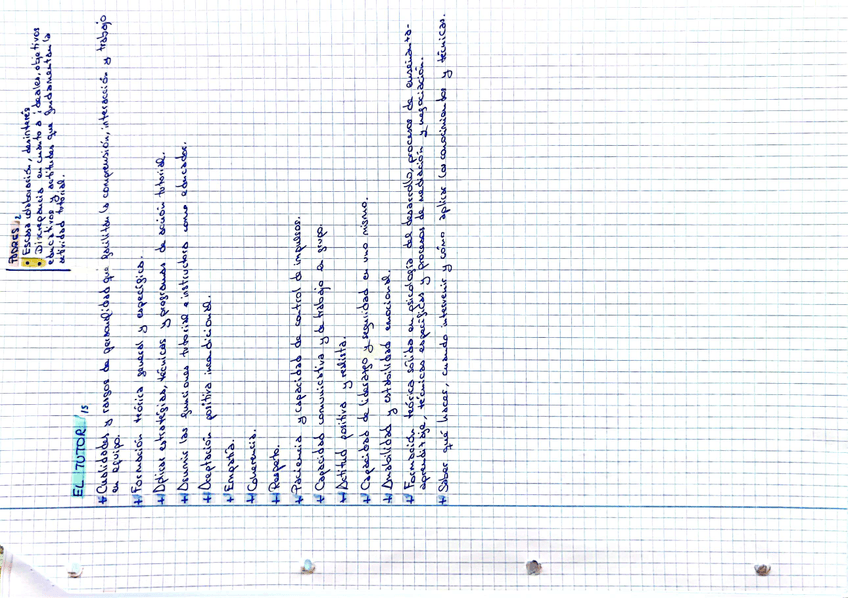 PADRES /2
• Escasa colaboración, desinterés
• Discrepancia en cuanto a ideales, objetivos
educativos y actitudes que fundamentan la
actividad tutorial.
EL TUTOR /15
+ Cualidades y rasgos de personalidad que faciliten la comprensión, interacción y trabajo
en equipo.
+ Formación teórica general y específica.
+ Aplicar estrategias, técnicas y programas de acción tutorial.
+ Asumir las funciones tutorial e instructora como educador.
+ Aceptación positiva incondicional.
+ Empatía.
+ Coherencia.
+ Respeto.
+ Paciencia y capacidad de control de impulsos.
+ Capacidad comunicativa y de trabajo en grupo.
+ Actitud positiva y realista.
+ Capacidad de liderazgo y seguridad en uno mismo.
+ Amabilidad y estabilidad emocional.
+ Formación teórica sólida en psicología del desarrollo, procesos de enseñanza-
aprendizaje, técnicas específicas y procesos de mediación y negociación.
+ Saber qué hacer, cuando intervenir y cómo aplicar los conocimientos y técnicas.